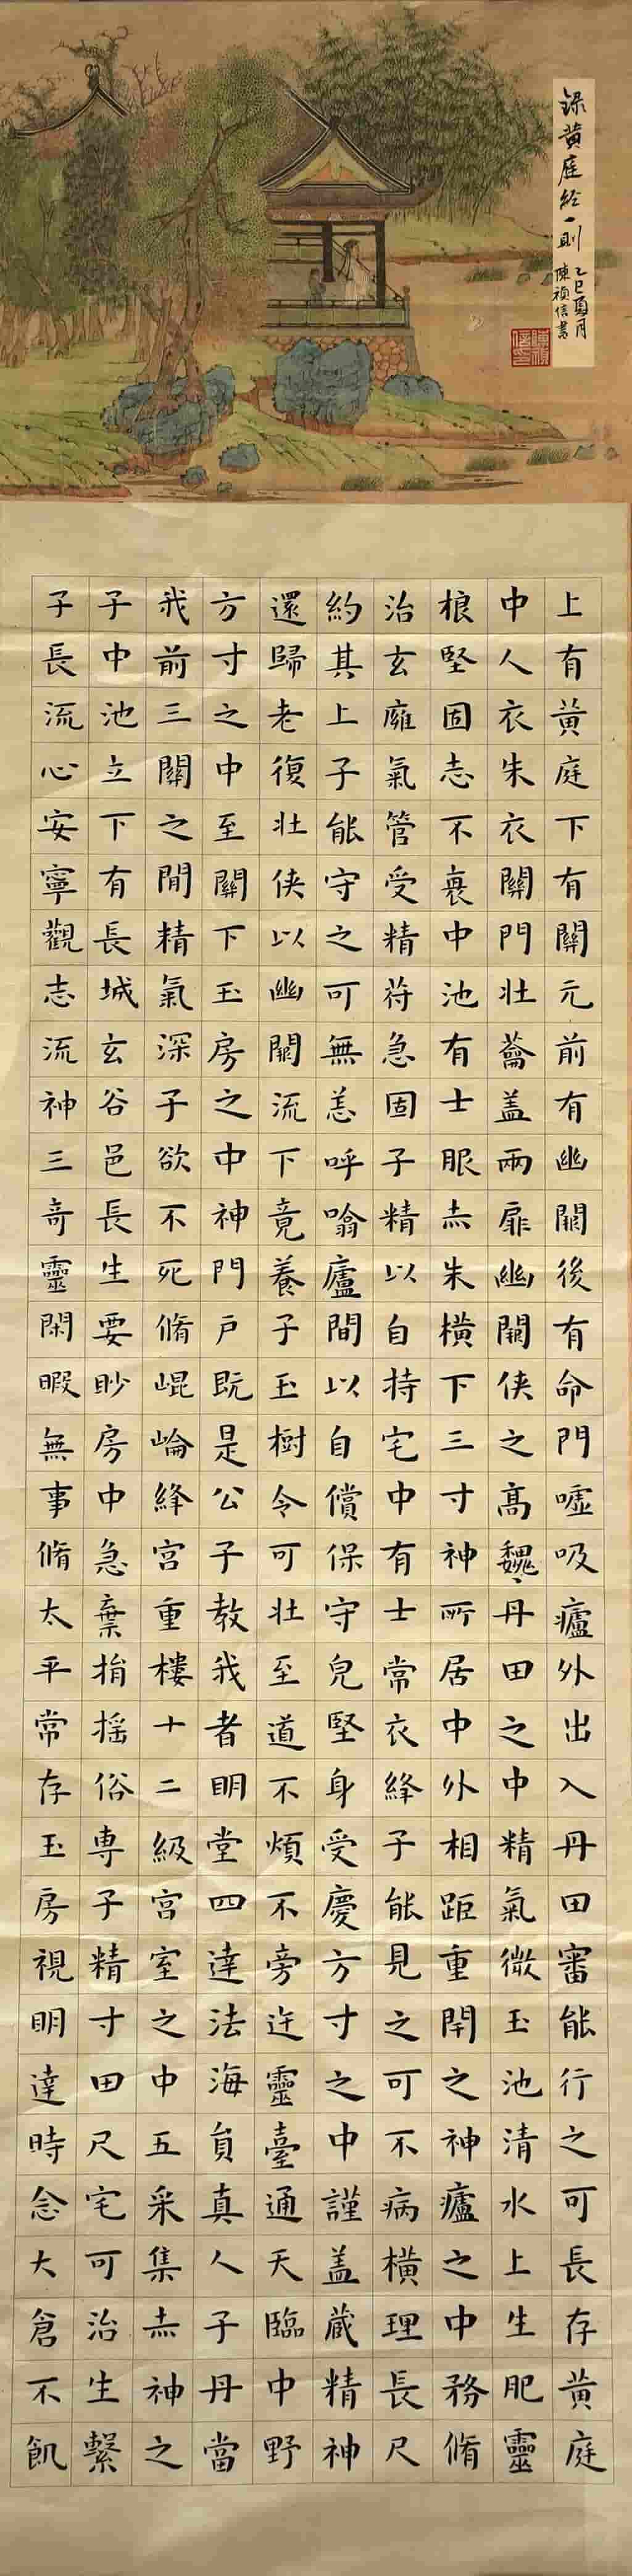 録黄庭経一則
乙巳酉月
陳禎信書
上有黄庭下有關元前有幽闕後有命門噓吸廬外出入丹田審能行之可長存黄庭
中人衣朱衣關門壮蘥盖兩扉幽闕侠之髙魏〻丹田之中精氣微玉池清水上生肥靈
根堅固志不衰中池有士服赤朱橫下三寸神所居中外相距重閇之神廬之中務脩
治玄廱氣管受精苻急固子精以自持宅中有士常衣絳子能見之可不病橫理長尺
約其上子能守之可無恙呼噏廬間以自償保守皃堅身受慶方寸之中謹盖蔵精神
還歸老復壮侠以幽闕流下竟養子玉樹令可壮至道不煩不旁迕靈臺通天臨中野
方寸之中至關下玉房之中神門戸既是公子教我者明堂四達法海員真人子丹當
我前三關之間精氣深子欲不死脩崐崘絳宫重樓十二級宫室之中五采集赤神之
子中池立下有長城玄谷邑長生要眇房中急棄捐揺俗専子精寸田尺宅可治生繋
子長流心安寧觀志流神三竒靈閑暇無事脩太平常存玉房視明達時念大倉不飢